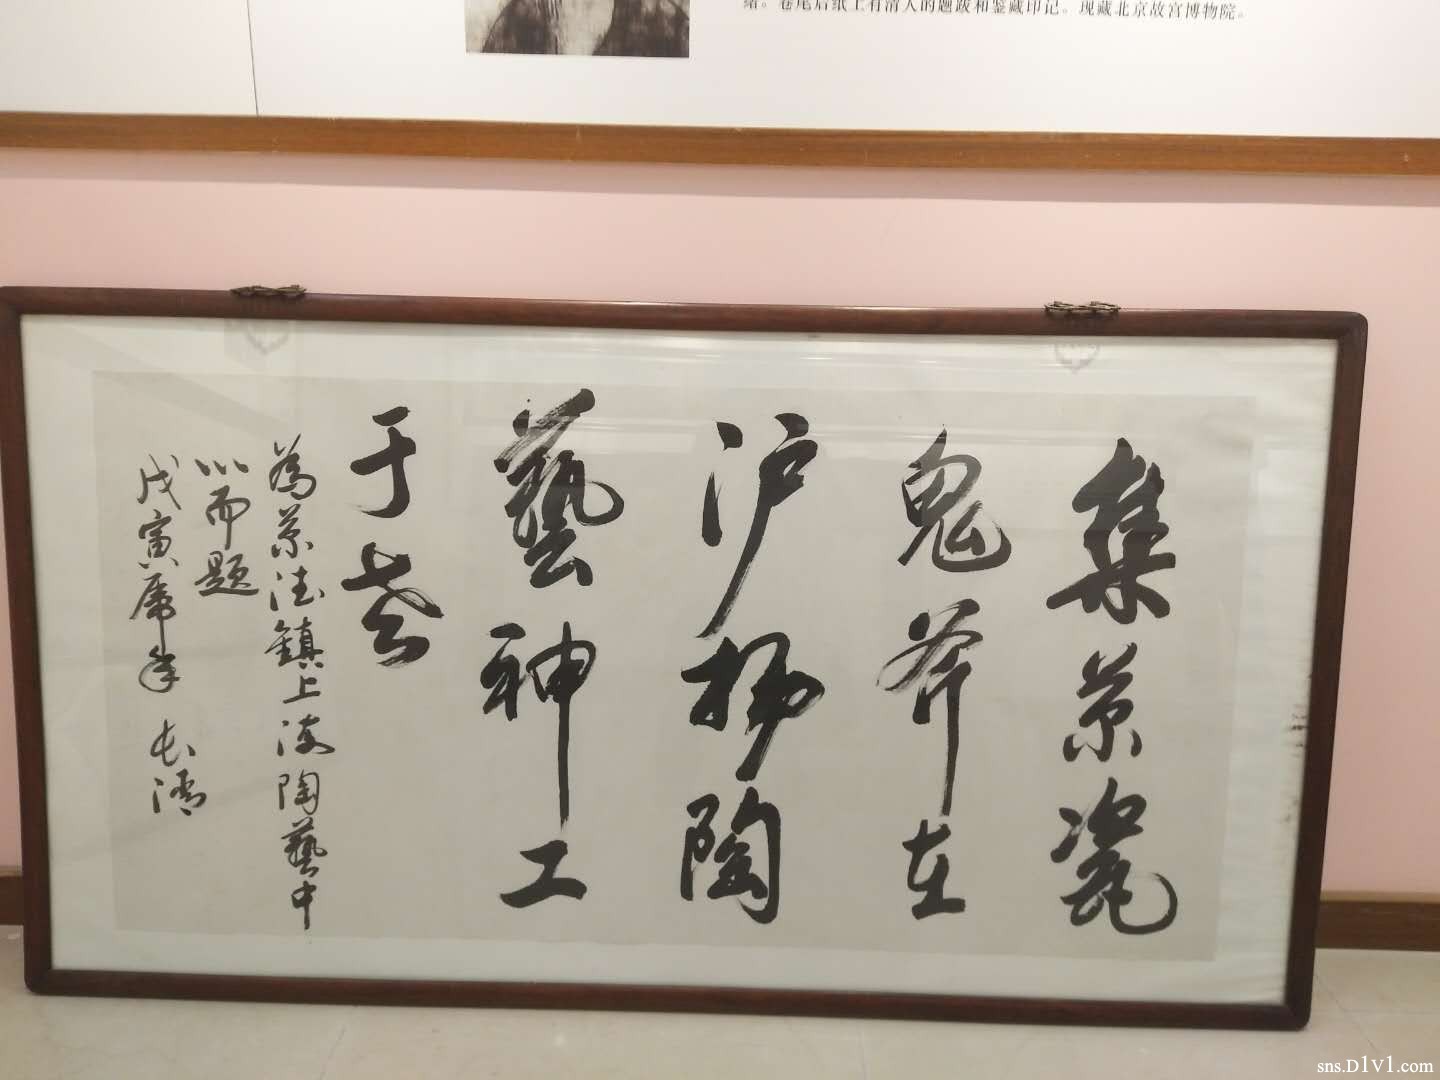 绪。卷尾后纸上有清人的题跋和鉴藏印记。现藏北京故宫博物院。
集景瓷
鬼斧在
沪扬陶
藝神工
于茲
為景德鎮上海陶藝中
心而题
戊寅虎年 长濤
sns.D1V1.com